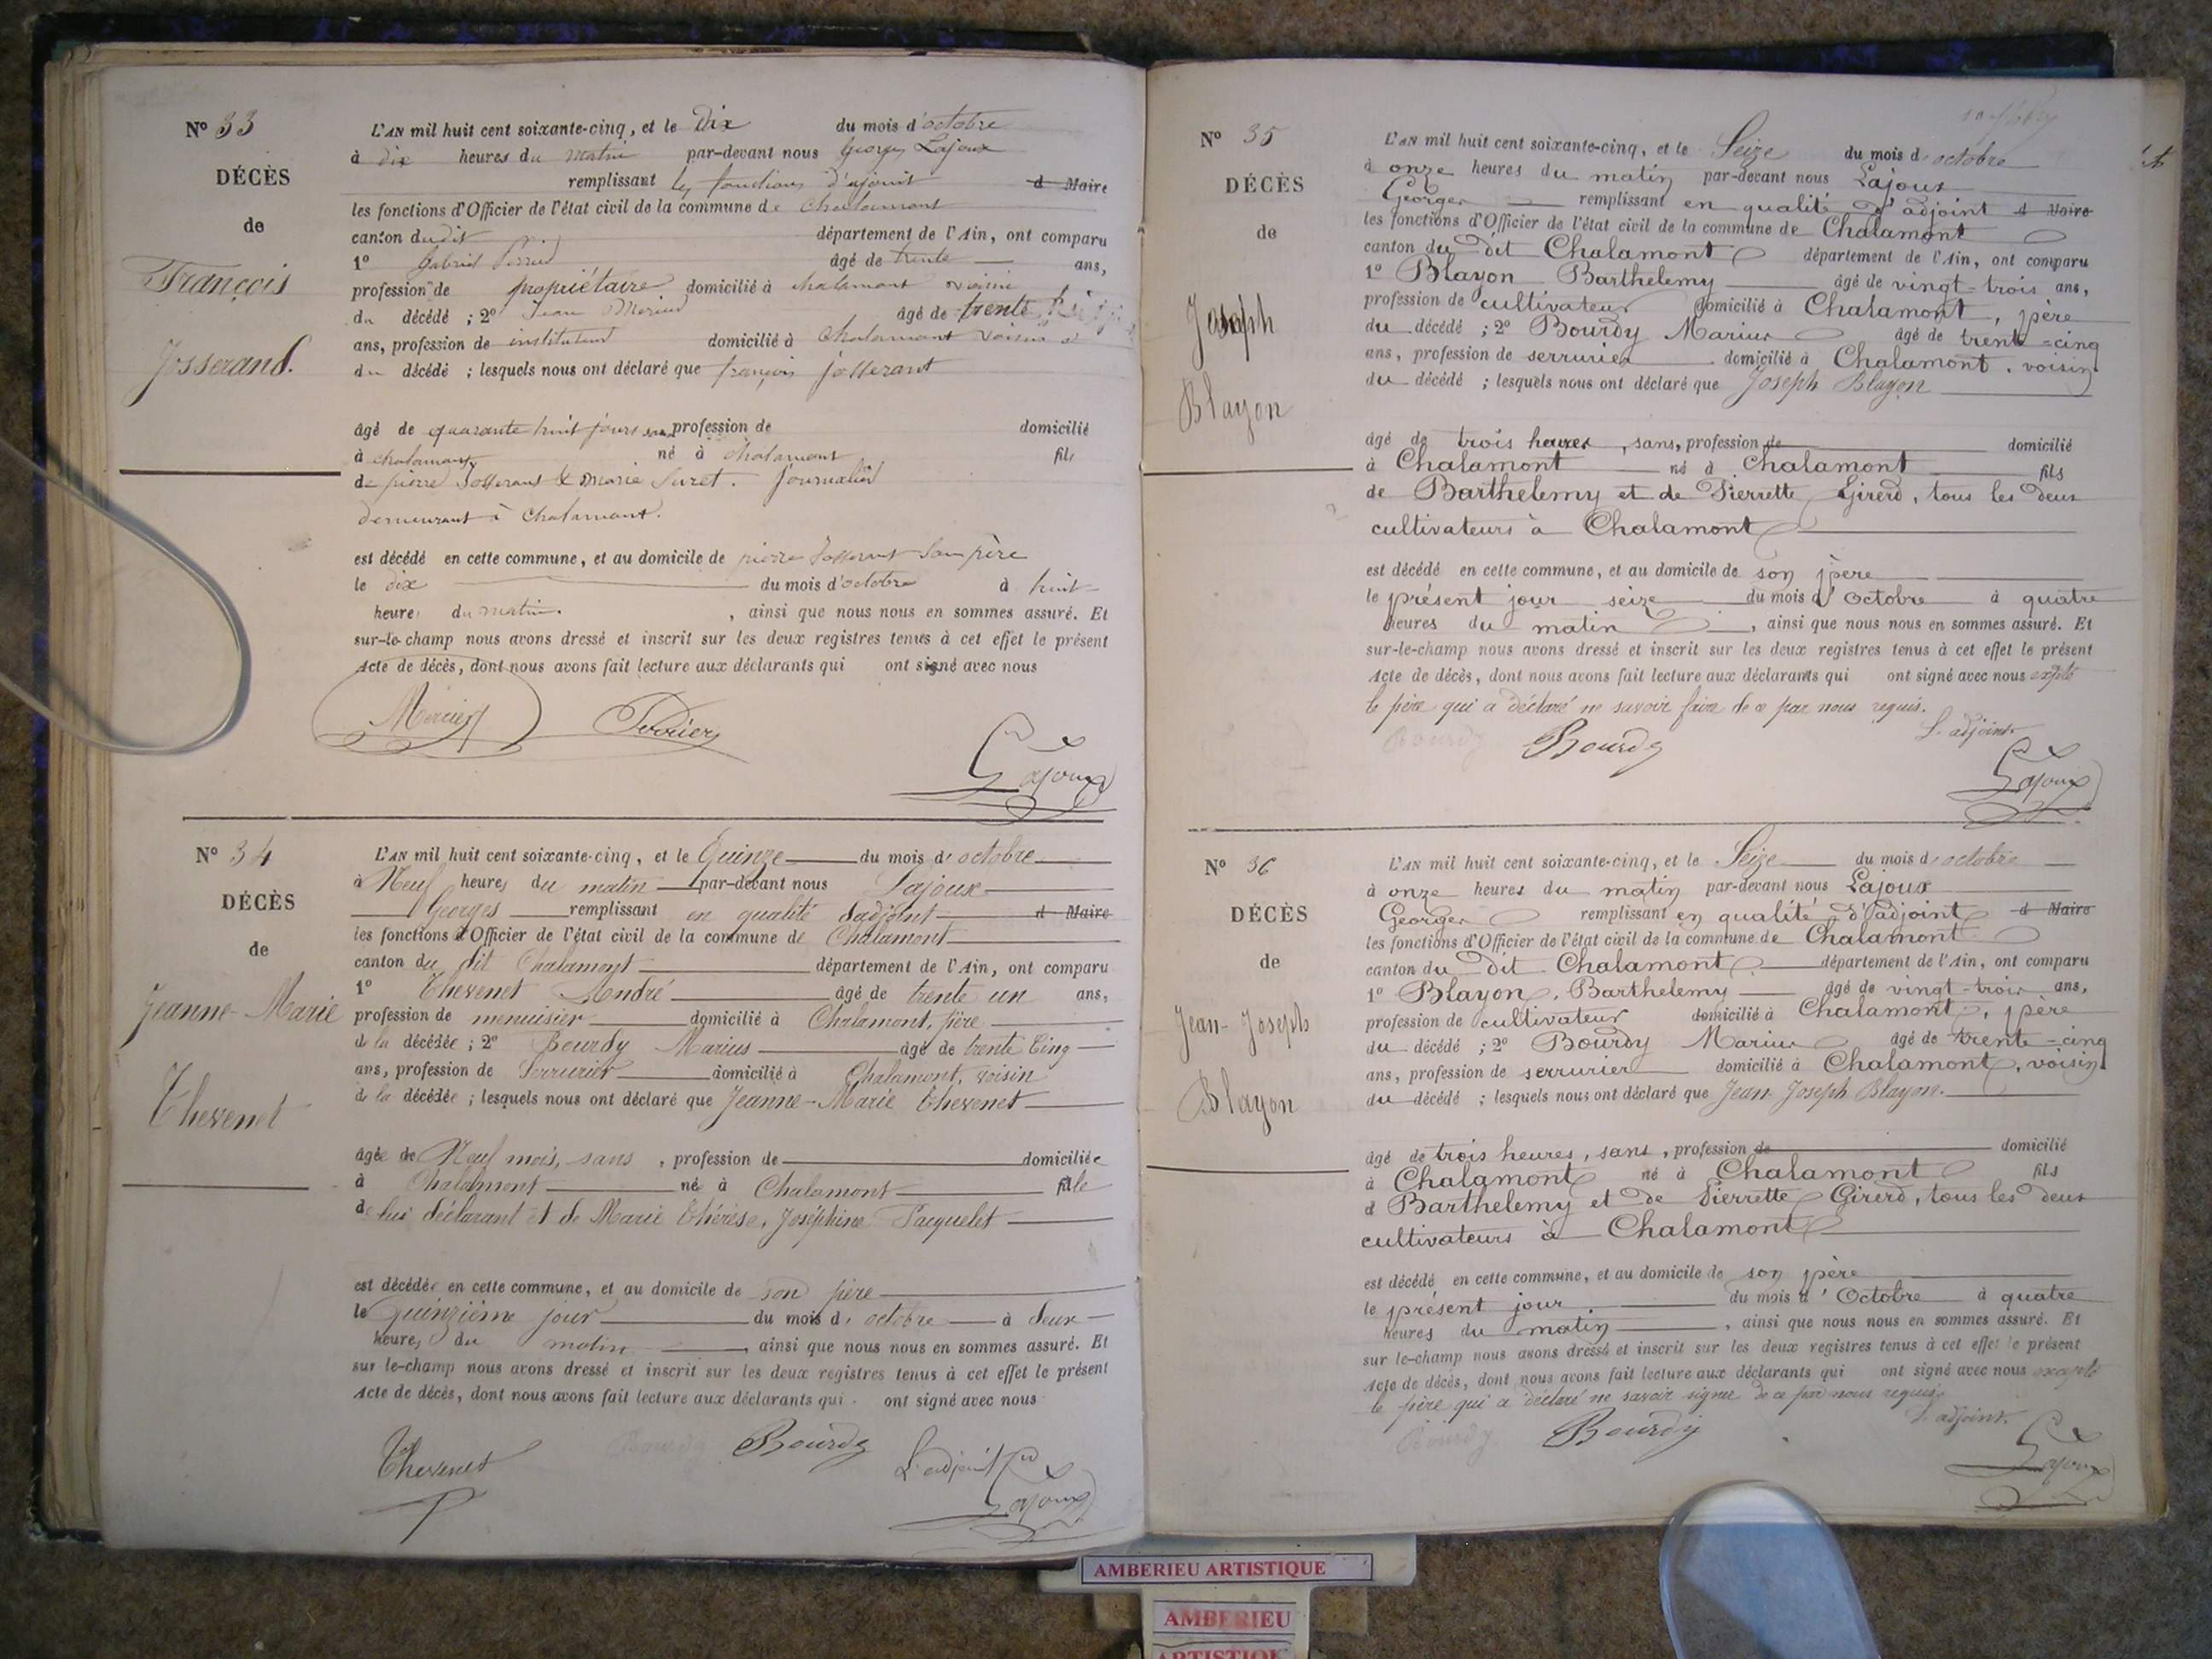 N° 33
DÉCÈS
de
François
Josserand.
L'AN mil huit cent soixante-cinq, et le Dix du mois d'octobre
à dix heures du matin par-devant nous Georges Lajoux
remplissant les fonctions d'ajoint d Maire
les fonctions d'Officier de l'état civil de la commune de Chalamont
canton dudit département de l'Ain, ont comparu
1° Gabriel âgé de trente ans,
profession de propriétaire domicilié à chalamont voisin
du décédé ; 2° Jean âgé de trente
ans, profession de instituteur domicilié à Chalamont voisin
du décédé ; lesquels nous ont déclaré que françois josserant
âgé de quarante huit jours sans profession de domicilié
à chalamont né à chalamont fils
de pierre Josserant & Marie Suret. journalier
demeurant à Chalamont.
est décédé en cette commune, et au domicile de pierre Josserant son père
le dix du mois d'octobre à huit
heures du matin. , ainsi que nous nous en sommes assuré. Et
sur-le-champ nous avons dressé et inscrit sur les deux registres tenus à cet effet le présent
Acte de décès, dont nous avons fait lecture aux déclarants qui ont signé avec nous
Mercier
Lajoux
N° 34
DÉCÈS
de
Jeanne-Marie
Thevenet
L'AN mil huit cent soixante-cinq, et le Quinze du mois d'octobre
à Neuf heures du matin par-devant nous Lajoux
Georges remplissant en qualité d'adjoint d Maire
les fonctions d'Officier de l'état civil de la commune de Chalamont
canton du dit Chalamont département de l'Ain, ont comparu
1° Thevenet André âgé de trente un ans,
profession de menuisier domicilié à Chalamont, père
de la décédée ; 2° Bourdy Marius âgé de trente Cinq
ans, profession de Serrurier domicilié à Chalamont, voisin
de la décédée ; lesquels nous ont déclaré que Jeanne-Marie Thevenet
âgée de Neuf mois, sans , profession de domiciliée
à Chalamont née à Chalamont fille
de lui déclarant et de Marie Thérèse, Joséphine Pacquelet
est décédée en cette commune, et au domicile de son père
le Quinzième jour du mois d'octobre à deux
heures du matin , ainsi que nous nous en sommes assuré. Et
sur le-champ nous avons dressé et inscrit sur les deux registres tenus à cet effet le présent
Acte de décès, dont nous avons fait lecture aux déclarants qui ont signé avec nous
Thevenet Bourdy L'adjoint
Lajoux
N° 35
DÉCÈS
de
Joseph
Blayon
L'AN mil huit cent soixante-cinq, et le Seize du mois d'octobre
à onze heures du matin par-devant nous Lajoux
Georges remplissant en qualité d'adjoint d Maire
les fonctions d'Officier de l'état civil de la commune de Chalamont
canton du dit Chalamont département de l'Ain, ont comparu
1° Blayon Barthelemy âgé de vingt-trois ans,
profession de cultivateur domicilié à Chalamont, père
du décédé ; 2° Bourdy Marius âgé de trente=cinq
ans, profession de serrurier domicilié à Chalamont, voisin
du décédé ; lesquels nous ont déclaré que Joseph Blayon
âgé de trois heures, sans, profession de domicilié
à Chalamont né à Chalamont fils
de Barthelemy et de Pierrette Girerd, tous les deux
cultivateurs à Chalamont
est décédé en cette commune, et au domicile de son père
le présent jour seize du mois d'Octobre à quatre
heures du matin , ainsi que nous nous en sommes assuré. Et
sur-le-champ nous avons dressé et inscrit sur les deux registres tenus à cet effet le présent
Acte de décès, dont nous avons fait lecture aux déclarants qui ont signé avec nous excepté
le père qui a déclaré ne savoir faire de ce par nous requis.
Bourdy L'adjoint
Lajoux
N° 36
DÉCÈS
de
Jean-Joseph
Blayon
L'AN mil huit cent soixante-cinq, et le Seize du mois d'octobre
à onze heures du matin par-devant nous Lajoux
Georges remplissant en qualité d'adjoint d Maire
les fonctions d'Officier de l'état civil de la commune de Chalamont
canton du dit Chalamont département de l'Ain, ont comparu
1° Blayon, Barthelemy âgé de vingt-trois ans,
profession de cultivateur domicilié à Chalamont, père
du décédé ; 2° Bourdy Marius âgé de trente=cinq
ans, profession de serrurier domicilié à Chalamont, voisin
du décédé ; lesquels nous ont déclaré que Jean-Joseph Blayon.
âgé de trois heures, sans, profession de domicilié
à Chalamont né à Chalamont fils
d Barthelemy et de Pierrette Girerd, tous les deux
cultivateurs à Chalamont
est décédé en cette commune, et au domicile de son père
le présent jour du mois d'Octobre à quatre
heures du matin , ainsi que nous nous en sommes assuré. Et
sur le-champ nous avons dressé et inscrit sur les deux registres tenus à cet effet le présent
Acte de décès, dont nous avons fait lecture aux déclarants qui ont signé avec nous excepté
le père qui a déclaré ne savoir signer de ce par nous requis
Bourdy L'adjoint.
Lajoux
AMBERIEU ARTISTIQUE
AMBERIEU
ARTISTIQUE